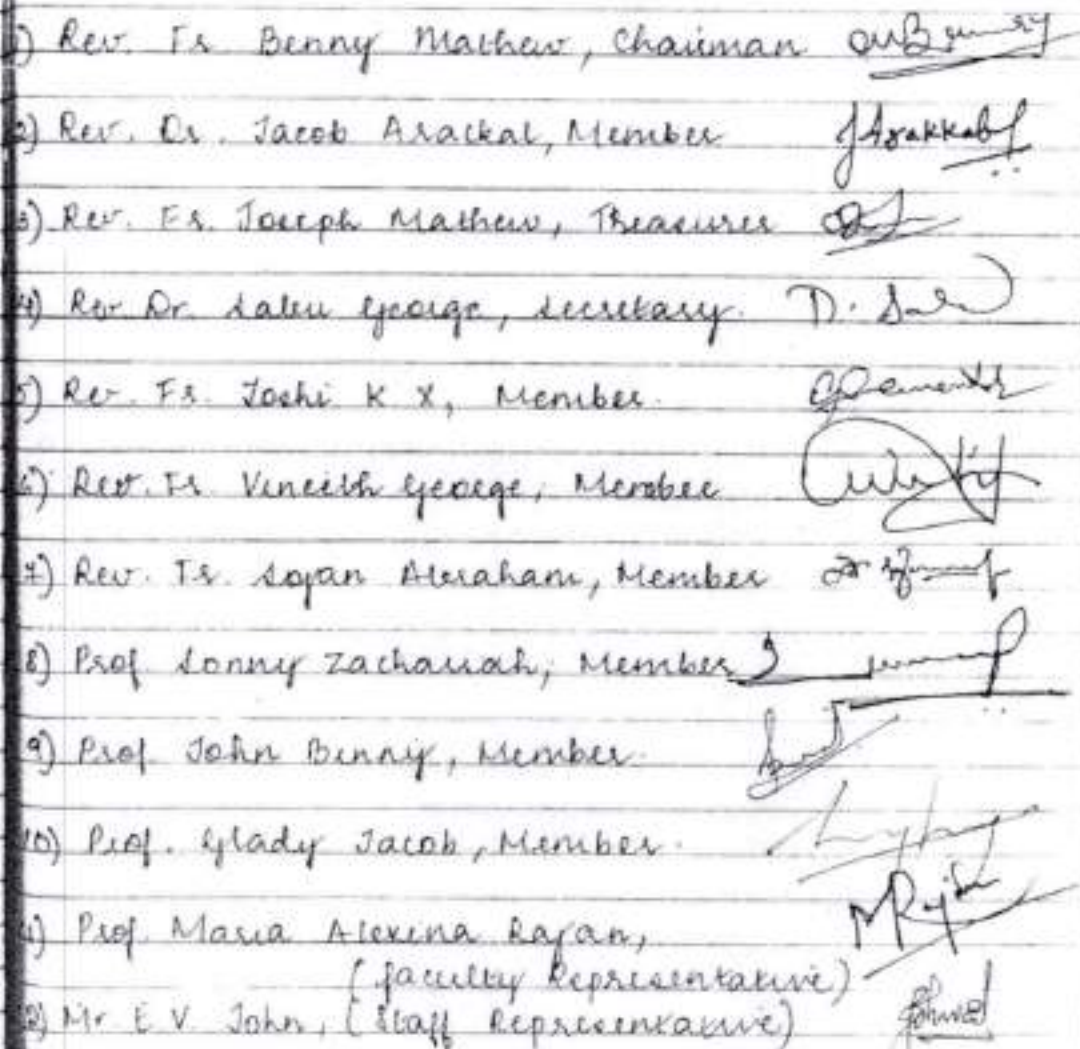 1) Rev. Fr. Benny Mathew, Chairman
2) Rev. Dr. Jacob Arackal, Member J Arakkal
3) Rev. Fr. Joseph Mathew, Treasurer
4) Rev Dr. Saleu George, Secretary.
5) Rev. Fr. Joshi K X, Member.
6) Rev. Fr. Vineeth George, Member
7) Rev. Fr. Sojan Abraham, Member
8) Prof Sonny Zachariah, Member
9) Prof. John Benny, Member.
10) Prof. Glady Jacob, Member.
11) Prof. Maria Alexina Rajan,
(faculty Representative)
12) Mr E V. John, (Staff Representative)